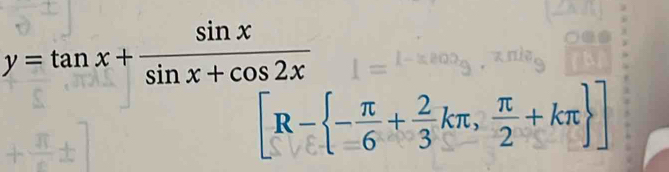 y = tan x + sin x / (sin x + cos 2x)
[R − {−π/6 + 2/3 kπ, π/2 + kπ}]